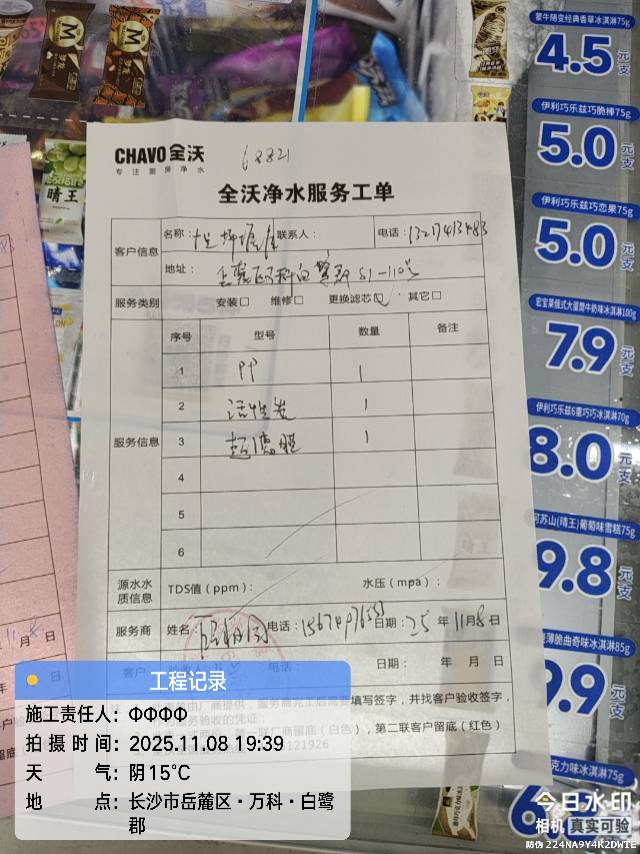 CHAVO 全沃
专注厨房净水
68821
全沃净水服务工单
客户信息
名称：
联系人：
电话：
地址：
51-110号
服务类别
安装□ 维修□ 更换滤芯☑ 其它□
服务信息
序号 型号 数量 备注
1 PP 1
2 活性炭 1
3 超滤膜 1
4
5
6
源水水质信息
TDS值（ppm）：
水压（mpa）：
服务商
姓名：
电话：
日期：25年11月8日
客户
电话：
日期： 年 月 日
填写签字，并找客户验收签字，
第二联客户留底（红色）
工程记录
施工责任人：ФФФФ
拍摄时间：2025.11.08 19:39
天气：阴15℃
地点：长沙市岳麓区·万科·白鹭郡
蒙牛随变经典香草冰淇淋75g
4.5元/支
伊利巧乐兹巧脆棒75g
5.0元/支
伊利巧乐兹巧恋果75g
5.0元/支
7.9元/支
8.0元/支
阿苏山(晴王)葡萄味雪糕75g
9.8元/支
薄脆曲奇味冰淇淋85g
9.9元/支
克力味冰淇淋75g
晴王
今日水印
相机 真实可验
防伪 224NA9Y4K2DWTE